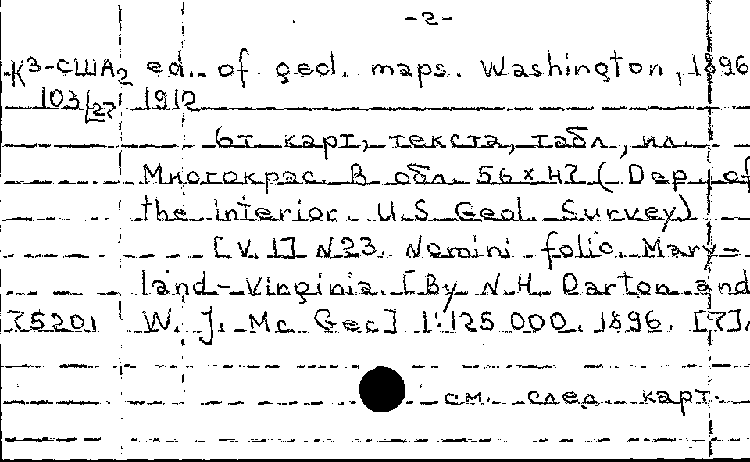 -2-
К3-США2 ed. of geol. maps. Washington, 1896
103/27 1912
6т карт, текста, табл, ил.
Многокрас. В обл. 56×47 (Dep. of
the Interior. U.S. Geol. Survey)
[V. 1] N23. Nomini folio. Mary-
land-Virginia. [By N.H. Darton and
75201 W. J. Mc Gee] 1:125 000. 1896. [7],
см. след карт.